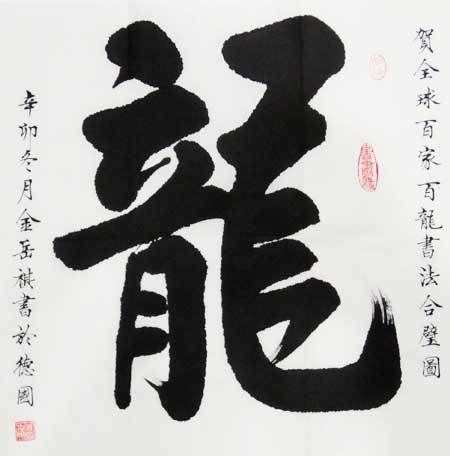 賀全球百家百龍書法合璧圖
龍
辛卯冬月金岳祺書於德國